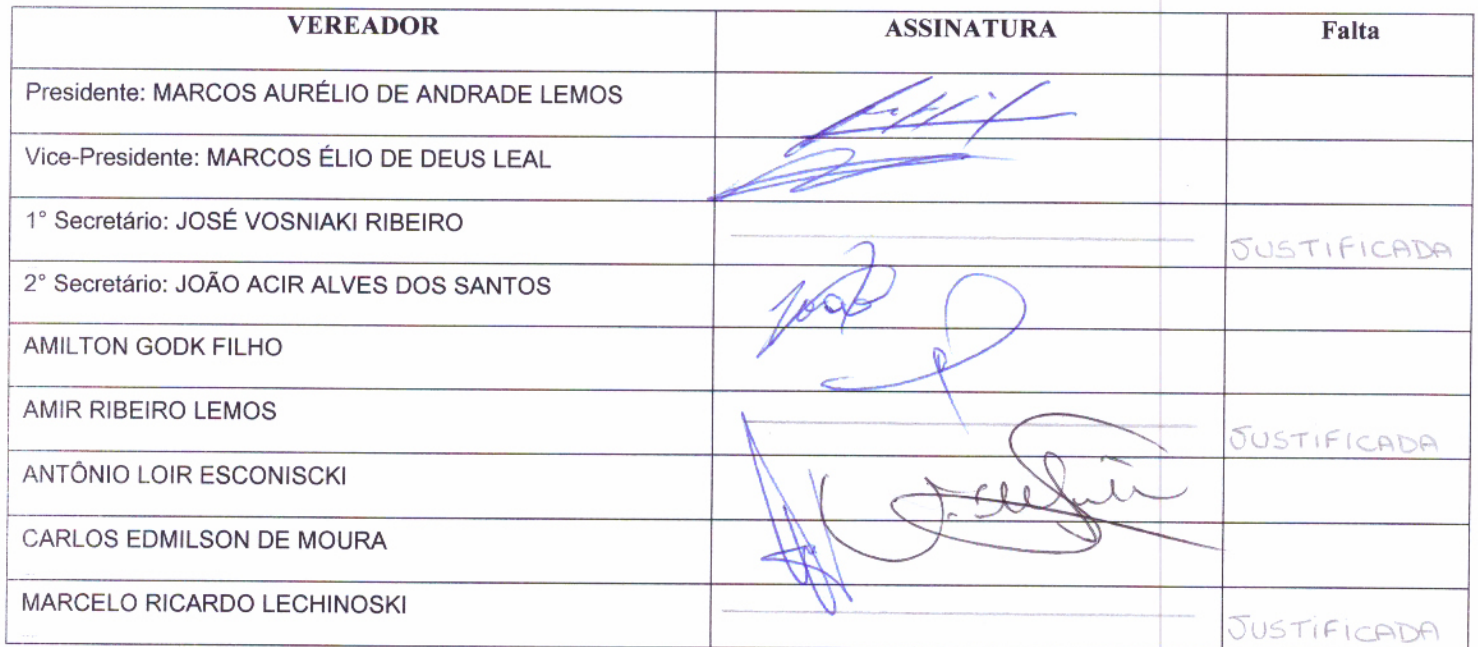 VEREADOR ASSINATURA Falta
Presidente: MARCOS AURÉLIO DE ANDRADE LEMOS
Vice-Presidente: MARCOS ÉLIO DE DEUS LEAL
1° Secretário: JOSÉ VOSNIAKI RIBEIRO JUSTIFICADA
2° Secretário: JOÃO ACIR ALVES DOS SANTOS João
AMILTON GODK FILHO
AMIR RIBEIRO LEMOS JUSTIFICADA
ANTÔNIO LOIR ESCONISCKI
CARLOS EDMILSON DE MOURA
MARCELO RICARDO LECHINOSKI JUSTIFICADA